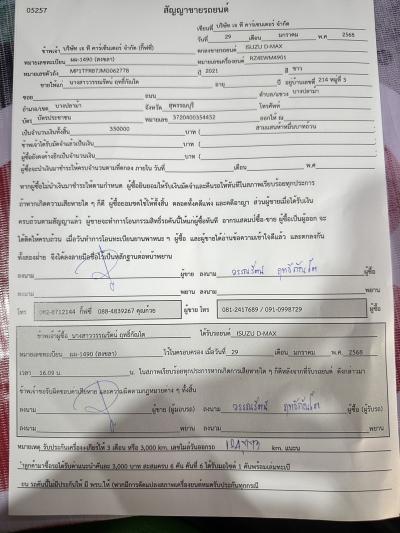 05257
สัญญาขายรถยนต์
เขียนที่ บริษัท เจ ที คาร์เซ็นเตอร์ จำกัด
วันที่ 29 เดือน มกราคม พ.ศ 2568
ข้าพเจ้า บริษัท เจ ที คาร์เซ็นเตอร์ จำกัด (กิ๊ฟซี่) ตกลงขายรถยนต์ ISUZU D-MAX
หมายเลขทะเบียน ผผ-1490 (สงขลา) หมายเลขเครื่องยนต์ RZ4EWM4901
หมายเลขตัวถัง MP1TFR87JMG062778 ปี 2021 สี ขาว
ขายให้แก่ นางสาววรรณรัตน์ ฤทธิ์กัณโต อายุ ปี อยู่บ้านเลขที่ 214 หมู่ที่ 3
ซอย ถนน ตำบล/แขวง บางปลาม้า
อำเภอ/เขต บางปลาม้า จังหวัด สุพรรณบุรี โทรศัพท์
บัตร บัตรประชาชน หมายเลข 3720400354432 ออกให้ ณ
เป็นจำนวนเงินทั้งสิ้น 350000 บาท ( สามแสนห้าหมื่นบาทถ้วน
ข้าพเจ้าได้รับมัดจำแล้วเป็นเงิน บาท (
ผู้ซื้อยังคงค้างอีกเป็นจำนวนเงิน บาท (
ผู้ซื้อจะนำเงินมาชำระให้ครบจำนวนตามที่ตกลง ภายใน วันที่ เดือน พ.ศ
หากผู้ซื้อไม่นำเงินมาชำระให้ตามกำหนด ผู้ซื้อยินยอมให้ริบเงินมัดจำและคืนรถให้ทันทีในสภาพเรียบร้อยทุกประการ
ถ้าหากเกิดความเสียหายใด ๆ ก็ดี ผู้ซื้อยอมชดใช้ให้ทั้งสิ้น ตลอดทั้งคดีแพ่ง และคดีอาญา ส่วนผู้ขายเมื่อได้รับเงิน
ครบถ้วนตามสัญญาแล้ว ผู้ขายจะทำการโอนกรรมสิทธิ์รถคันนี้ให้แก่ผู้ซื้อทันที
ทั้งสองฝ่าย จึงได้ลงลายมือชื่อไว้เป็นหลักฐานต่อหน้าพยาน
ลงนาม ผู้ขาย ลงนาม วรรณรัตน์ ฤทธิ์กัณโต ผู้ซื้อ
ลงนาม พยาน ลงนาม พยาน
โทร 082-8712144 กิ๊ฟซี่ 088-4839267 คุณก้วย ผู้ขาย โทร 081-2417689 / 091-0998729 ผู้ซื้อ
ข้าพเจ้าผู้ซื้อ นางสาววรรณรัตน์ ฤทธิ์กัณโต ได้รับรถยนต์ ISUZU D-MAX
หมายเลขทะเบียน ผผ-1490 (สงขลา) ไว้ในครอบครอง เมื่อวันที่ 29 เดือน มกราคม พ.ศ 2568
เวลา 16.09 น. ในสภาพเรียบร้อยทุกประการหากเกิดการเสียหายใด ๆ ก็ดีหลังจากที่รับรถยนต์ ดังกล่าวมา
ข้าพเจ้าจะรับผิดชอบค่าเสียหาย และความผิดตามกฎหมายต่าง ๆ ทั้งสิ้น
ลงนาม ผู้ขาย (ผู้มอบรถ) ลงนาม วรรณรัตน์ ฤทธิ์กัณโต ผู้ซื้อ (ผู้รับรถ)
ลงนาม พยาน ลงนาม พยาน
หมายเหตุ รับประกันเครื่อง+เกียร์ให้ 3 เดือน หรือ 3,000 km. เลขไมล์วันออกรถ km. แนะนะ